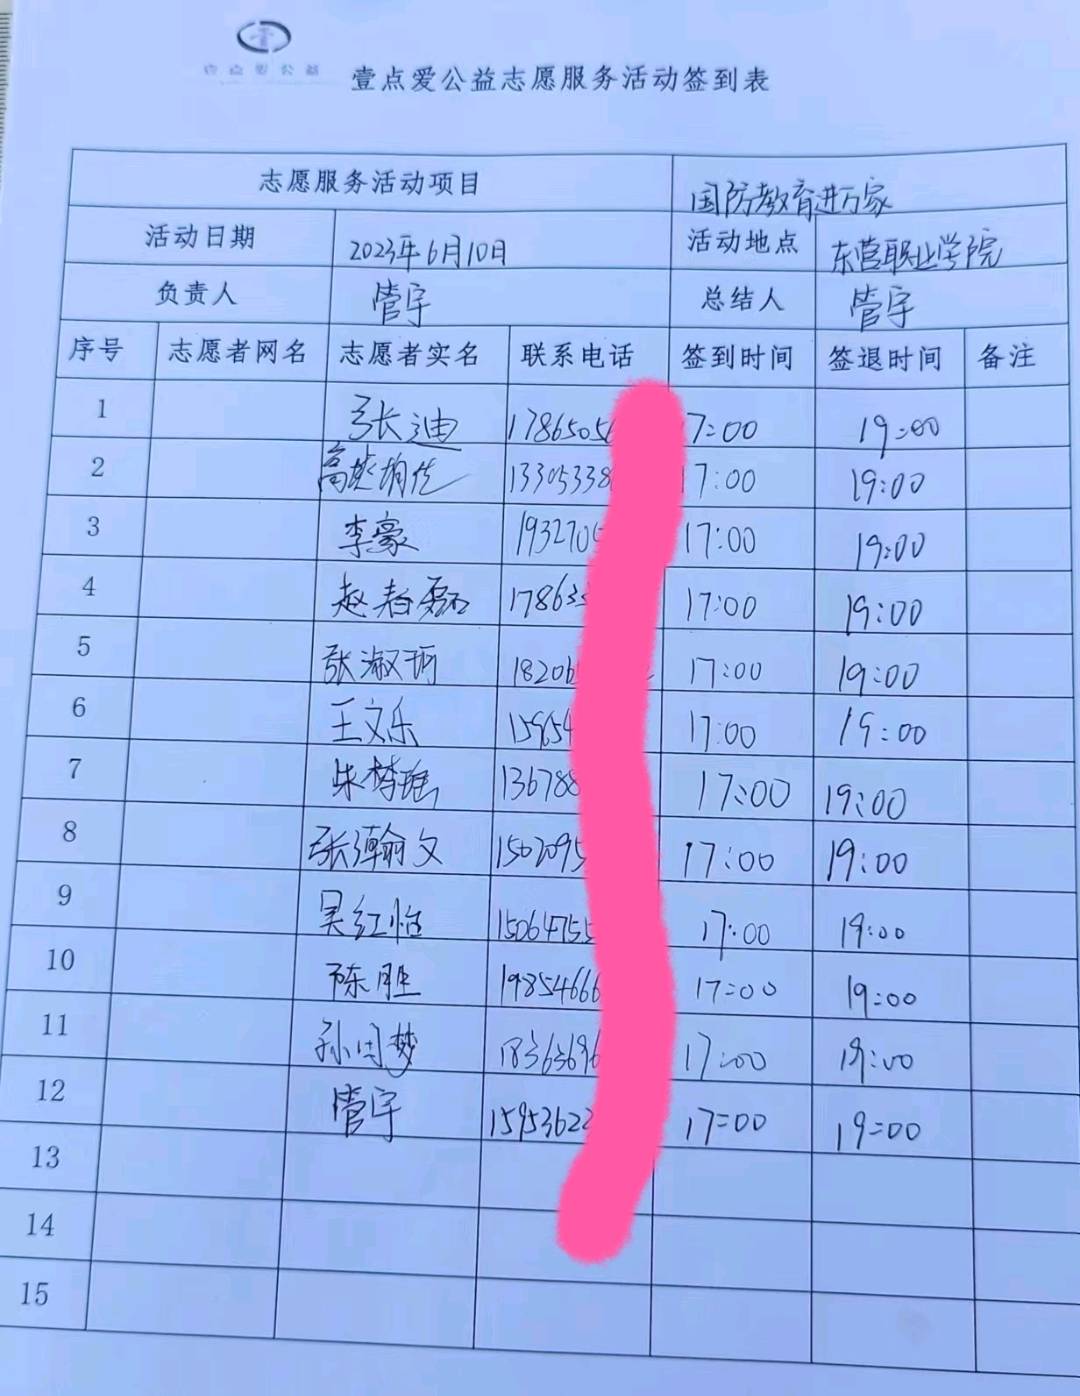 壹点爱公益
壹点爱公益志愿服务活动签到表
志愿服务活动项目 国防教育进万家
活动日期 2023年6月10日 活动地点 东营职业学院
负责人 管宇 总结人 管宇
序号 志愿者网名 志愿者实名 联系电话 签到时间 签退时间 备注
1 张迪 1786505 17:00 19:00
2 高 13305338 17:00 19:00
3 李豪 193270 17:00 19:00
4 赵春磊 17863 17:00 19:00
5 张淑珂 18206 17:00 19:00
6 王文乐 15954 17:00 19:00
7 柴梦瑶 136788 17:00 19:00
8 张瀚文 1502095 17:00 19:00
9 吴红怡 15064755 17:00 19:00
10 陈胜 19854666 17:00 19:00
11 孙同梦 18363696 17:00 19:00
12 管宇 15953622 17:00 19:00
13
14
15